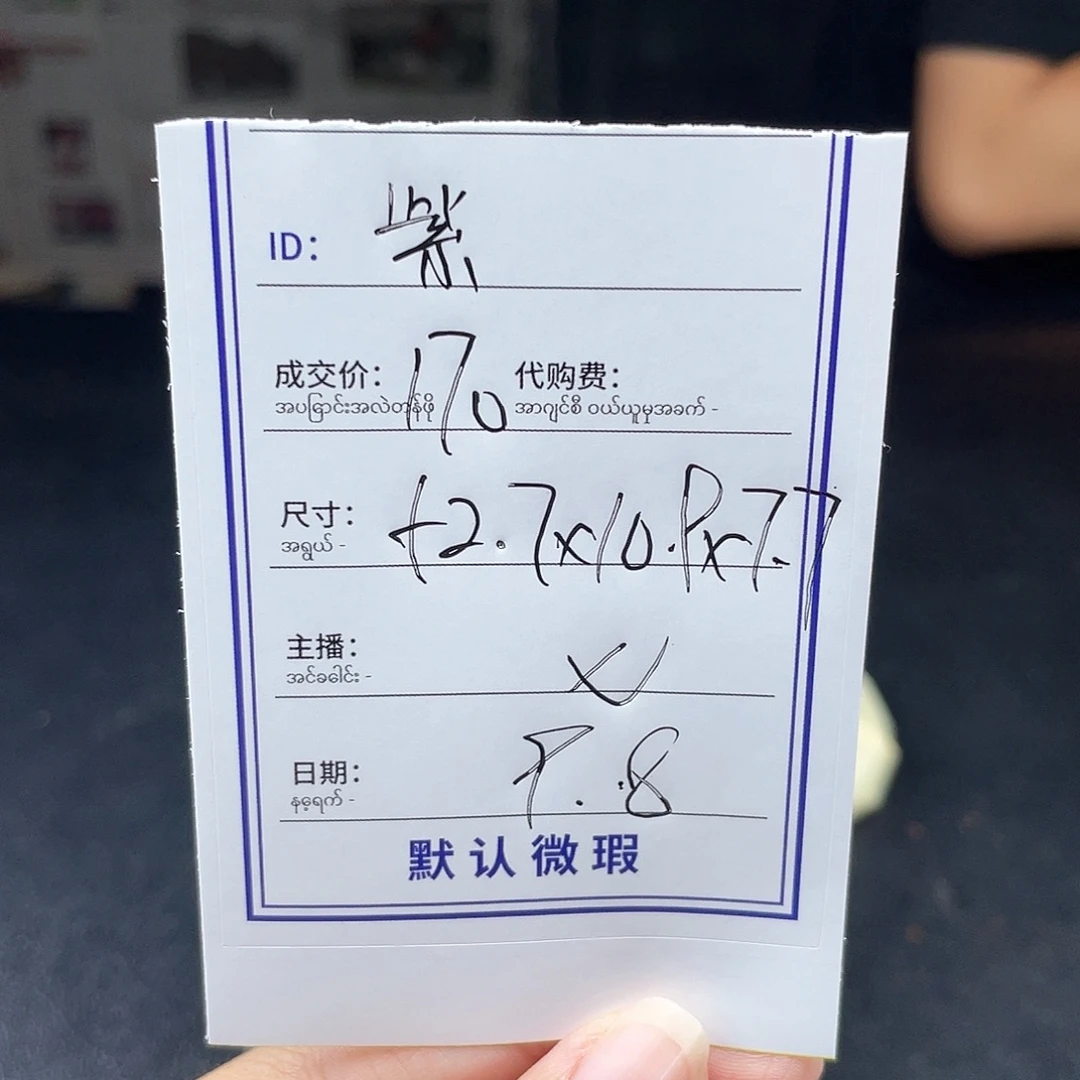 ID： 紫
成交价： 170 代购费：
အပြောင်းအလဲတန်ဖို အာဂျင်စီ ဝယ်ယူမှုအခက် -
尺寸： 12.7x10.9x7.7
အရွယ် -
主播：
အင်ခေါင်း -
日期： 9.8
နေ့ရက် -
默认微瑕